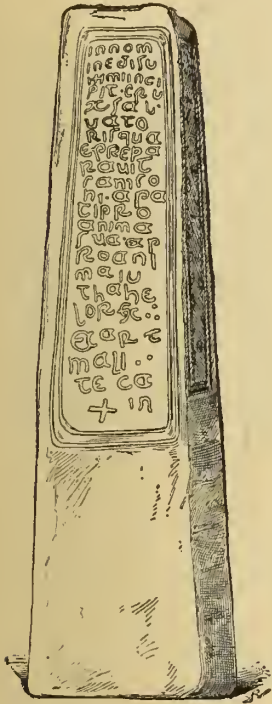 innom
inedisu
mmiinci
pit.cru
x.sal.
uato
risqua
eprepa
rauit
samso
ni.apa
tipro
anima
sua.ap
roani
maiu
thahe
lorex:
art
mali:
teca
+ in